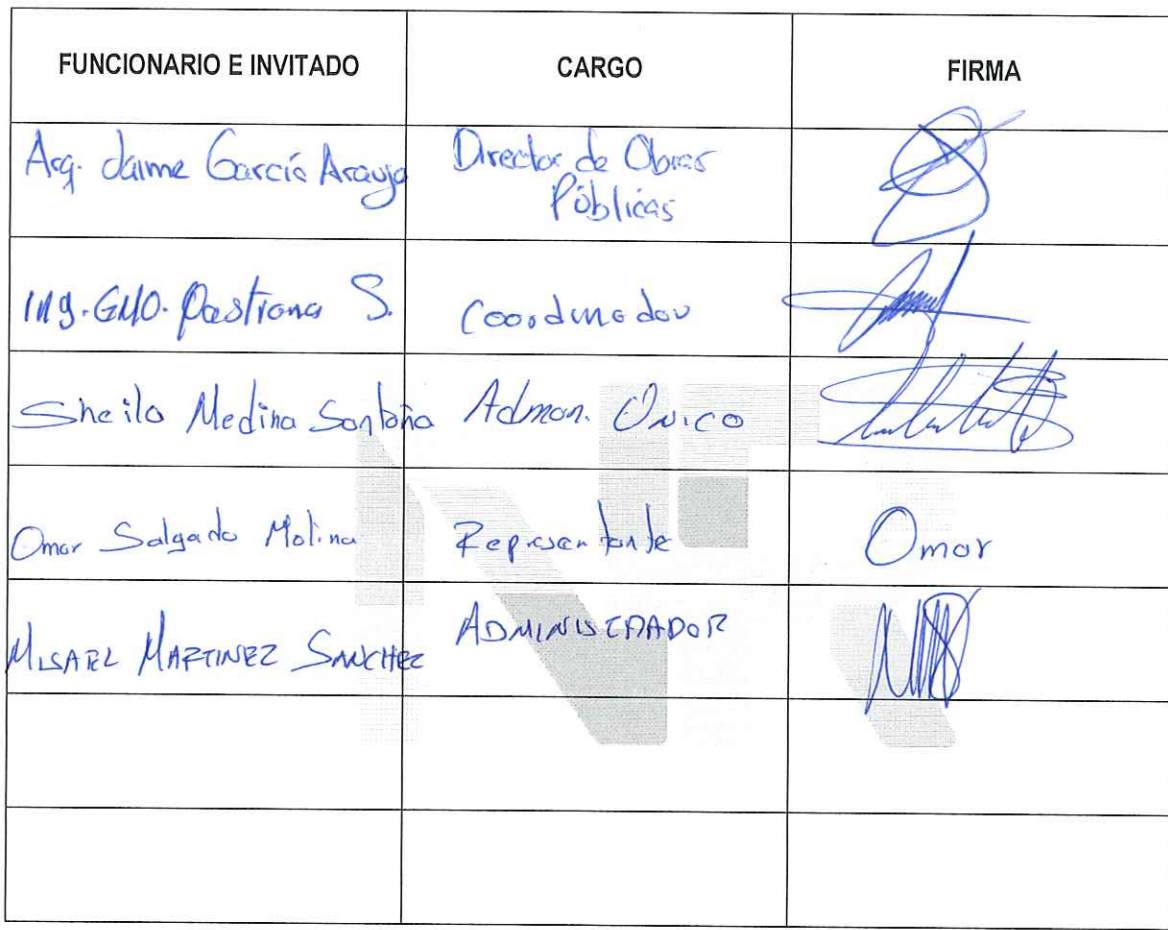 FUNCIONARIO E INVITADO CARGO FIRMA
Arq. Jaime García Araujo Director de Obras
Públicas
Ing. GMO. Pastrana S. Coordinador
Sheila Medina Santaña Admon. Único
Omar Salgado Molina Representante Omar
MISAEL MARTINEZ SANCHEZ ADMINISTRADOR